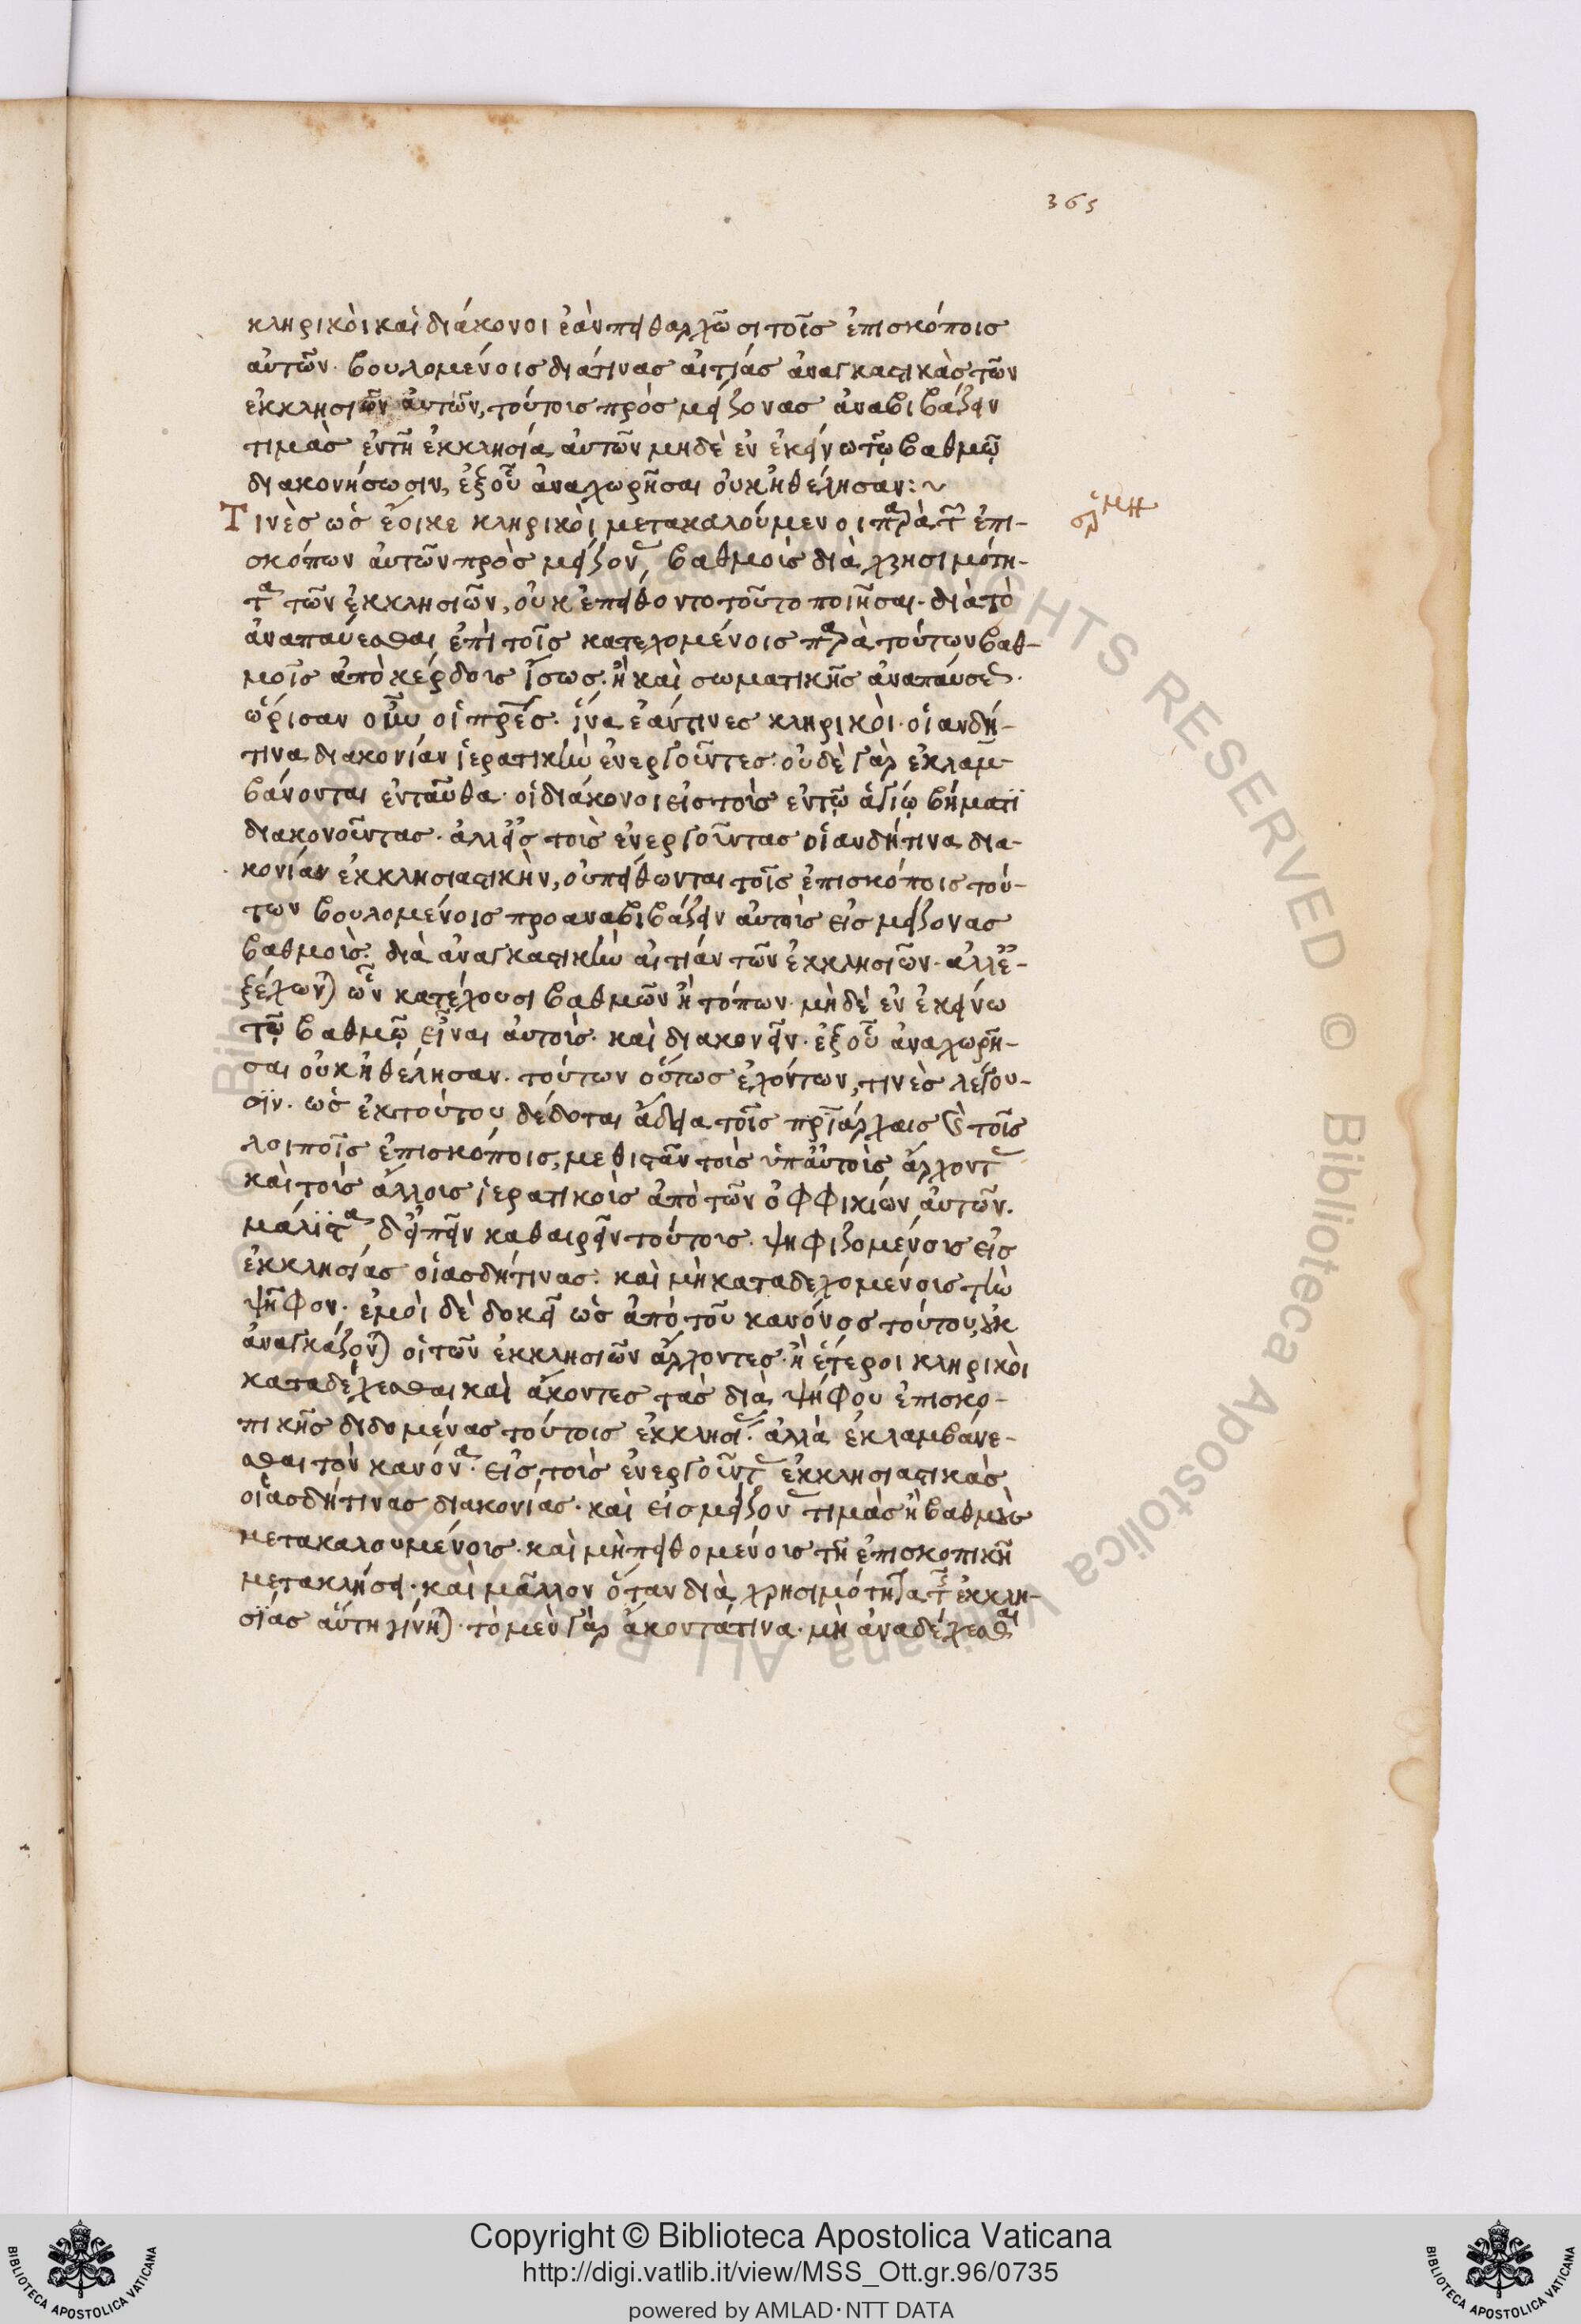 365
κληρικὸι καὶ διάκονοι ἐὰν πειθαρχῶσι τοῖς ἐπισκόποις
αὐτῶν· βουλομένοις διάτινας αἰτίας ἀναγκαστικὰς τῶν
ἐκκλησιῶν αὐτῶν, τούτοις πρὸς μείζονας ἀναβιβάζειν
τιμὰς ἐντῆ ἐκκλησία αὐτῶν μηδὲ ἐν ἐκείνω τῷ βαθμῷ
διακονήσωσιν, ἐξοὗ ἀναχωρῆσαι οὐκ ἠθέλησαν:~
Τινὲς ὡς ἔοικε κληρικὸι μετακαλούμενοι παρὰ τ ἐπι-
σκόπων αὐτῶν πρὸς μείζον βαθμοὺς διὰ χρησιμότη-
τα τῶν ἐκκλησιῶν, οὐκ ἐπείθοντο τοῦτο ποιῆσαι· διὰ τὸ
ἀναπαύεσθαι ἐπὶ τοῖς κατεχομένοις παρὰ τούτων βαθ-
μοῖς ἀπὸ κέρδους ἴσως· ἢ καὶ σωματικῆς ἀναπαύσε
ὥρισαν οὖν οἱ πρες· ἵνα ἐάντινες κληρικὸι· οἱανδή-
τινα διακονίαν ἱερατικὴν ἐνεργοῦντες· οὐδὲ γὰρ ἐκλαμ-
βάνονται ἐνταῦθα· οἱ διάκονοι εἰς τοὺς ἐντῷ ἁγίῳ βήματϊ
διακονοῦντας· ἀλλεἰς τοὺς ἐνεργοῦντας οἱανδήτινα δια-
κονίαν ἐκκλησιαστικὴν, οὐπείθωνται τοῖς ἐπισκόποις τού-
των βουλομένοις προαναβιβάζειν αὐτοὺς εἰς μείζονας
βαθμοὺς· διὰ ἀναγκαστικὴν αἰτίαν τῶν ἐκκλησιῶν· ἀλλἐ-
ξέχων) ὧν κατέχουσι βαθμῶν ἢ τόπων· μὴδὲ ἐν ἐκείνω
τῷ βαθμῷ εἶναι αὐτοὺς· καὶ διακονεῖν· ἐξοὗ ἀναχωρῆ-
σαι οὐκ ἠθέλησαν· τούτων οὕτως ἐχόντων, τινὲς λέγου-
σϊν· ὡς ἐκτούτου δέδοται ἄδεια τοῖς πρϊάρχαις κὶ τοῖς
λοιποῖς ἐπισκόποις, μεθιστᾶν τοὺς ὑπαὐτοὺς ἄρχοντ
καὶ τοὺς ἄλλους ἱερατικοὺς ἀπὸ τῶν ὀφφικίων αὐτῶν.
μάλϊστα δεἰπεῖν καθαιρεῖν τούτους· ψηφιζομένους εἰς
ἐκκλησίας οἱασδήτινας· καὶ μὴ καταδεχομένους τὴν
ψῆφον· ἐμοὶ δὲ δοκεῖ ὡς ἀπὸ τοῦ κανόνος τούτου, οὐκ
ἀναγκάζον) οἱ τῶν ἐκκλησιῶν ἄρχοντες· ἢ ἕτεροι κληρικὸι
καταδέχεσθαι καὶ ἄκοντες τὰς διὰ ψήφου ἐπισκο-
πικῆς διδομένας τούτοις ἐκκλησί· ἀλλὰ ἐκλαμβάνε-
σθαι τὸν κανόνα· εἰς τοὺς ἐνεργοῦντ ἐκκλησιαστικὰς
οἱασδήτινας διακονίας· καὶ εἰς μείζον τιμὰς ἢ βαθμοὺς
μετακαλουμένους· καὶ μὴ πειθομένους τῆ ἐπισκοπικῆ
μετακλήσει· καὶ μᾶλλον ὅταν διὰ χρησιμότητα τ ἐκκλη-
σϊας αὕτη γίνη)· τὸ μὲν γὰρ ἄκοντάτινα· μὴ ἀναδέχεσθαι